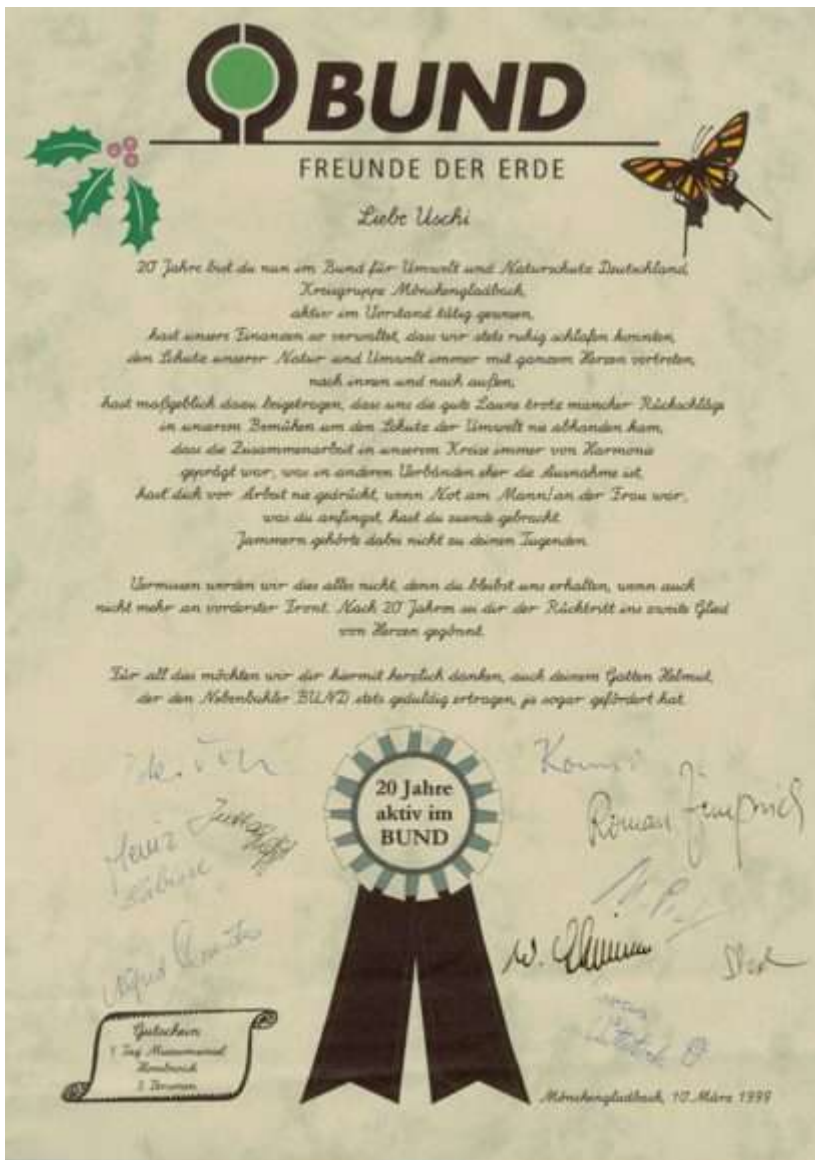 BUND
FREUNDE DER ERDE
Liebe Uschi
20 Jahre bist du nun im Bund für Umwelt und Naturschutz Deutschland,
Kreisgruppe Mönchengladbach,
aktiv im Vorstand tätig gewesen,
hast unsere Finanzen so verwaltet, dass wir stets ruhig schlafen konnten,
den Schutz unserer Natur und Umwelt immer mit ganzem Herzen vertreten,
nach innen und nach außen,
hast maßgeblich dazu beigetragen, dass uns die gute Laune trotz mancher Rückschläge
in unserem Bemühen um den Schutz der Umwelt nie abhanden kam,
dass die Zusammenarbeit in unserem Kreise immer von Harmonie
geprägt war, was in anderen Verbänden eher die Ausnahme ist,
hast dich vor Arbeit nie gedrückt, wenn Not am Mann/an der Frau war,
was du anfingst, hast du zuende gebracht.
Jammern gehörte dabei nicht zu deinen Tugenden.
Vermissen werden wir dies alles nicht, denn du bleibst uns erhalten, wenn auch
nicht mehr an vorderster Front. Nach 20 Jahren sei dir der Rücktritt ins zweite Glied
von Herzen gegönnt.
Für all das möchten wir dir hiermit herzlich danken, auch deinem Gatten Helmut,
der den Nebenbuhler BUND stets geduldig ertragen, ja sogar gefördert hat.
20 Jahre
aktiv im
BUND
Roman
Heinz
W.
Gutschein
1 Tag Museumsinsel
Hombroich
2 Personen
Mönchengladbach, 10. März 1999